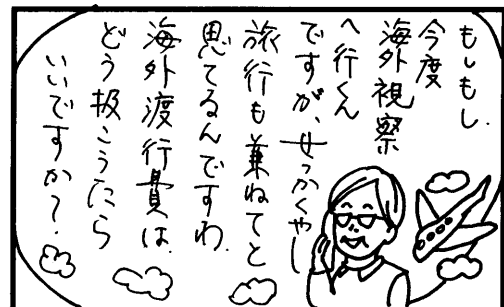 もしもし
今度
海外視察
へ行くん
ですが、せっかくやし
旅行も兼ねてと
思てるんですわ.
海外渡行費は
どう扱こうたら
いいですか?